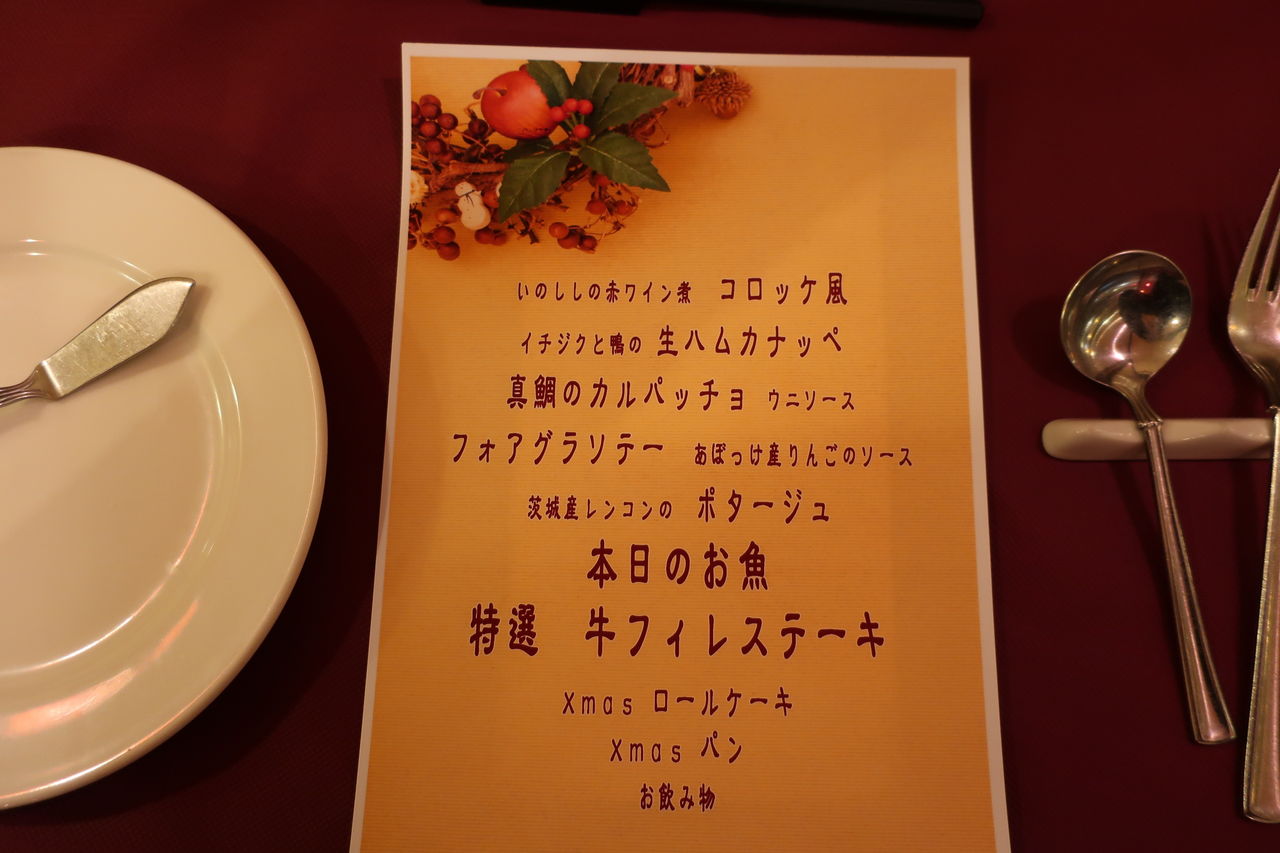 いのししの赤ワイン煮 コロッケ風
イチジクと鴨の 生ハムカナッペ
真鯛のカルパッチョ ウニソース
フォアグラソテー あぼっけ産りんごのソース
茨城産レンコンの ポタージュ
本日のお魚
特選 牛フィレステーキ
Xmas ロールケーキ
Xmas パン
お飲み物